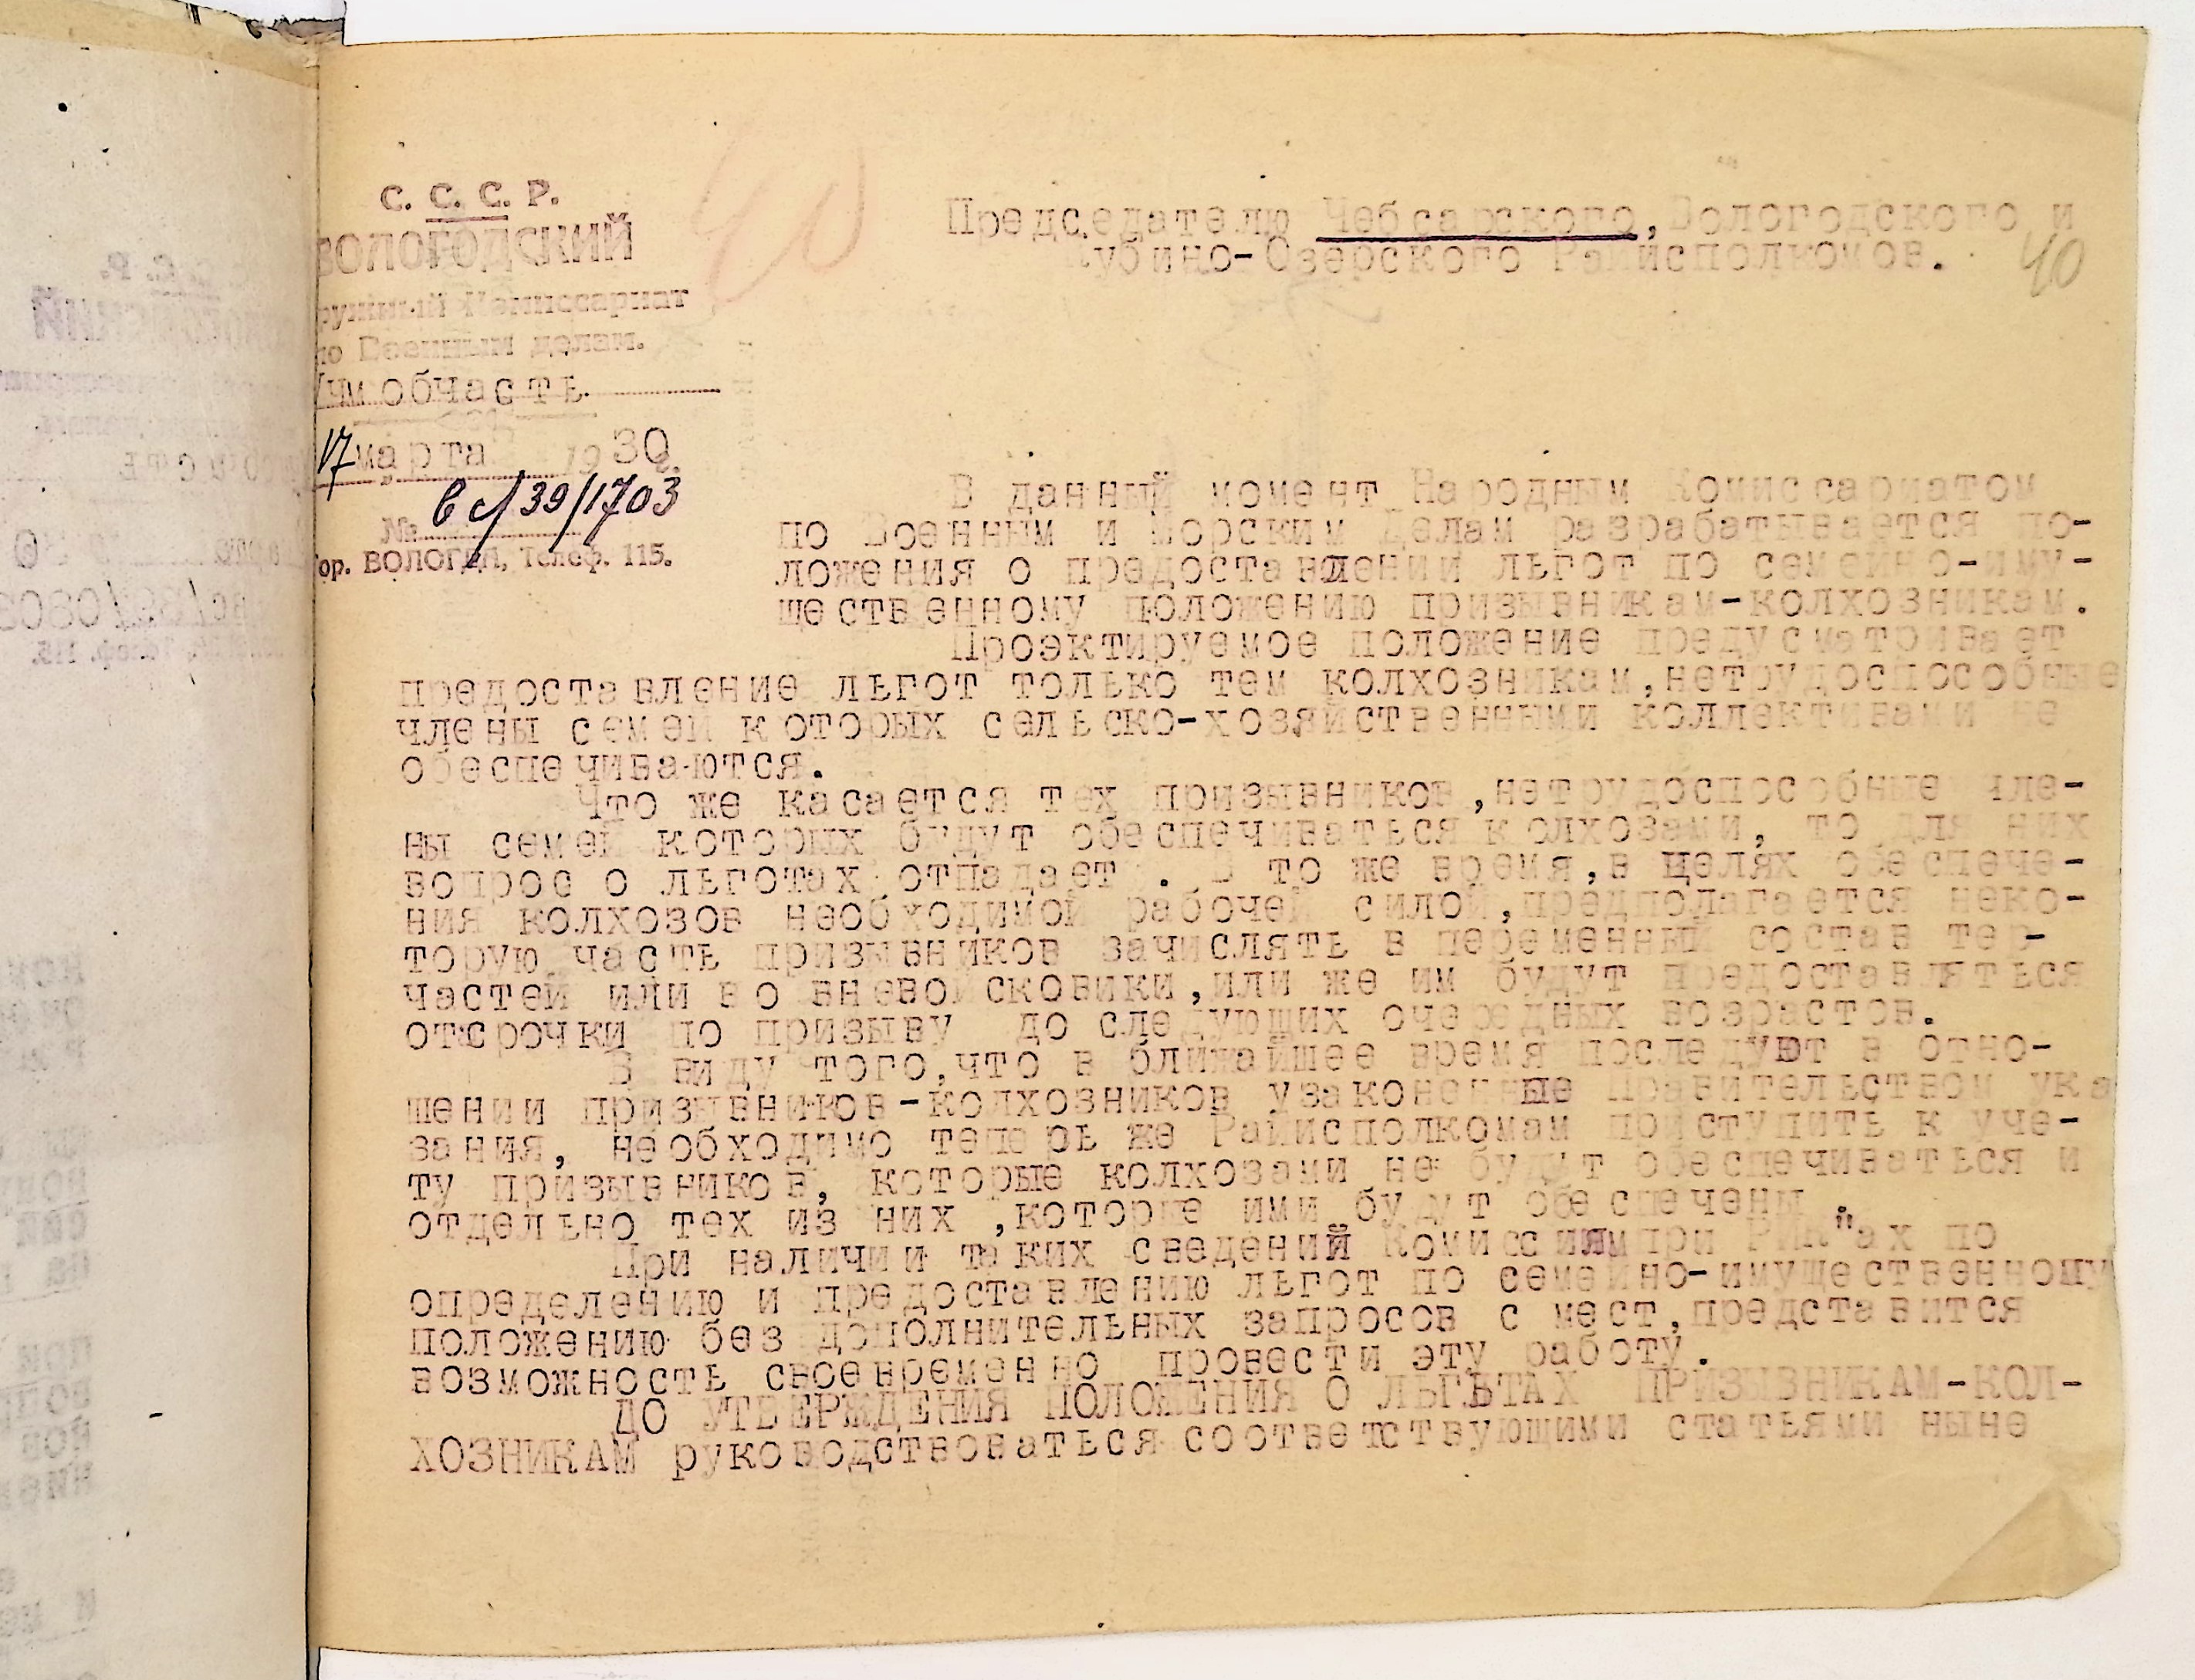 С. С. С. Р.
ВОЛОГОДСКИЙ
ружный Комиссариат
по Военным делам.
/чм обчасть.
17 марта 1930 г.
№ вс/39/1703
Гор. ВОЛОГДА, Телеф. 115.
Председателю Чебсарского, Вологодского и
Кубино-Озерского Райисполкомов.
40
В данный момент Народным Комиссариатом
по Военным и Морским Делам разрабатывается по-
ложения о предоставлении льгот по семейно-иму-
щественному положению призывникам-колхозникам.
Проэктируемое положение предусматривает
предоставление льгот только тем колхозникам,нетрудоспособные
члены семей которых сельско-хозяйственными коллективами не
обеспечиваются.
Что же касается тех призывников,нетрудоспособные чле-
ны семей которых будут обеспечиваться колхозами, то для них
вопрос о льготах отпадает . В то же время,в целях обеспече-
ния колхозов необходимой рабочей силой,предполагается неко-
торую часть призывников зачислять в переменный состав тер-
частей или во вневойсковики,или же им будут предоставляться
отсрочки по призыву до следующих очередных возрастов.
В виду того,что в ближайшее время последуют в отно-
шении призывников-колхозников узаконенные Правительством ука
зания, необходимо теперь же Райисполкомам приступить к уче-
ту призывников, которые колхозами не будут обеспечиваться и
отдельно тех из них ,которые ими будут обеспечены .
При наличии таких сведений Комиссиям при РИК"ах по
определению и предоставлению льгот по семейно-имущественному
положению без дополнительных запросов с мест,представится
возможность своевременно провести эту работу.
ДО УТВЕРЖДЕНИЯ ПОЛОЖЕНИЯ О ЛЬГЬТАХ ПРИЗЫВНИКАМ-КОЛ-
ХОЗНИКАМ руководствоваться соответствующими статьями ныне